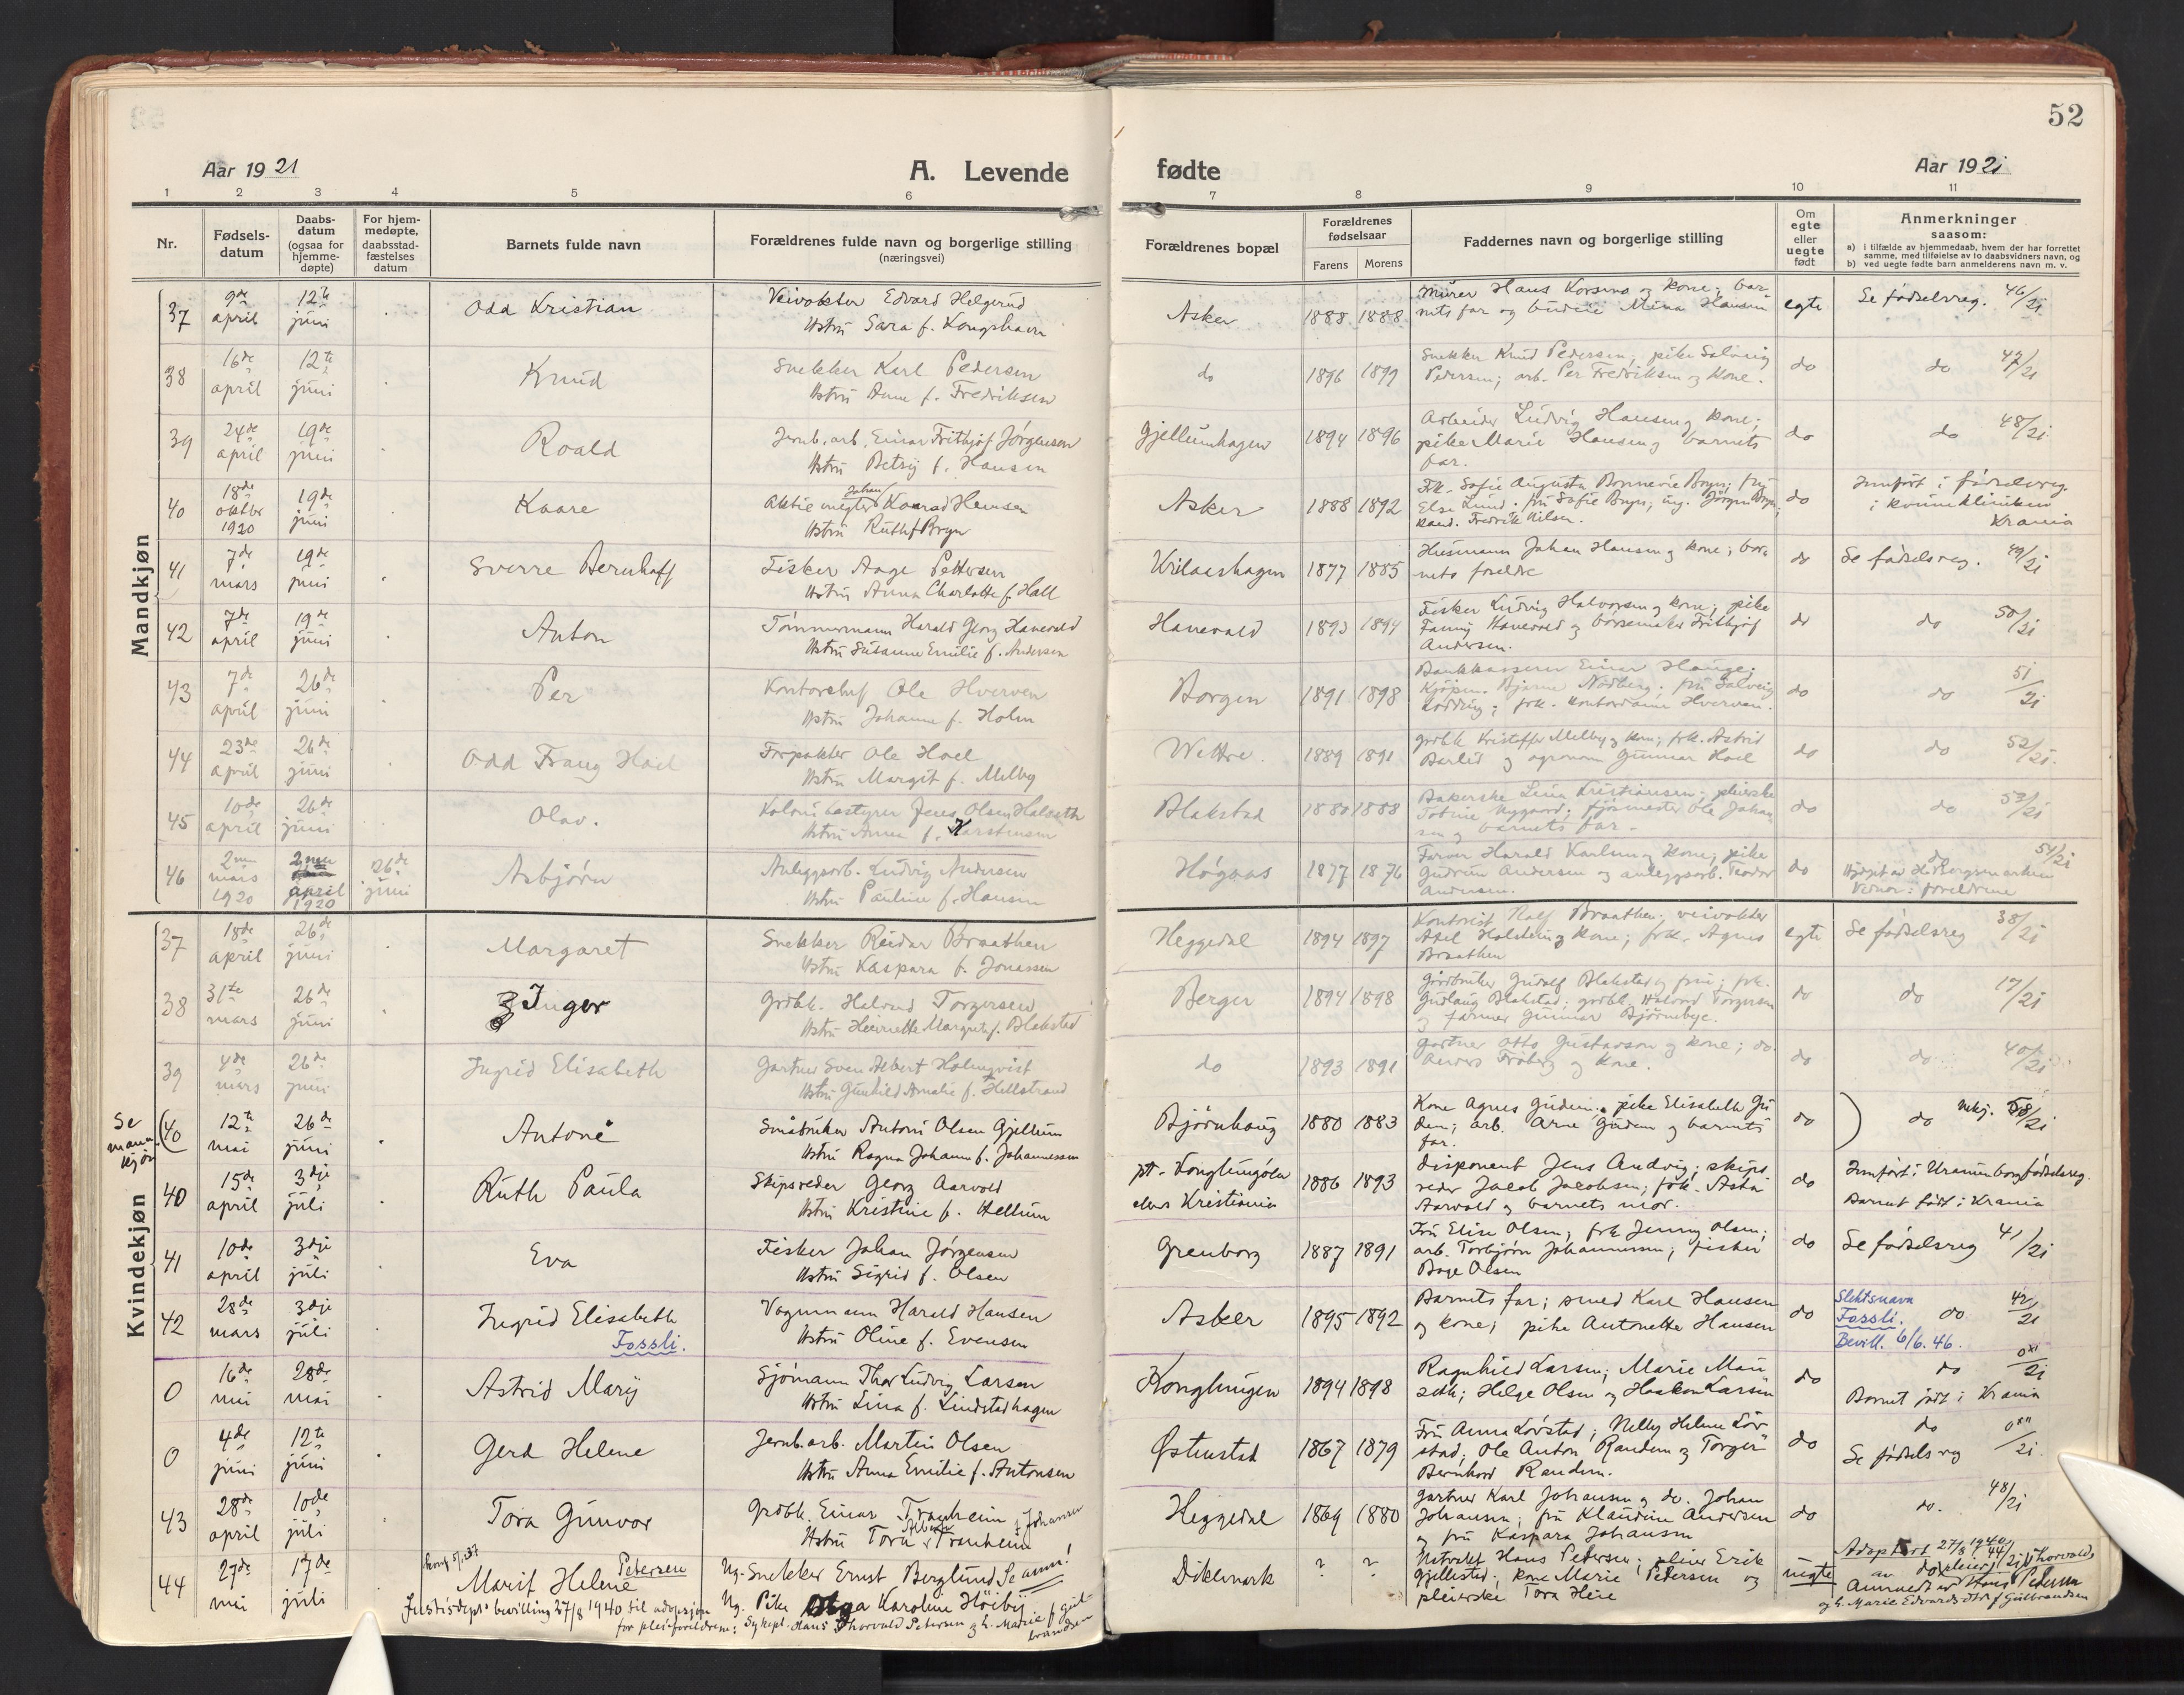 52
Aar 1921
A. Levende
fødte
Aar 1921
1 2 3 4 5 6 7 8 9 10 11
Nr.
Fødsels-
datum
Daabs-
datum
(ogsaa for
hjemme-
døpte)
For hjem-
medøpte,
daabsstad-
fæstelses
datum
Barnets fulde navn
Forældrenes fulde navn og borgerlige stilling
(næringsvei)
Forældrenes bopæl
Forældrenes
fødselsaar
Farens Morens
Faddernes navn og borgerlige stilling
Om
egte
eller
uegte
født
Anmerkninger
saasom:
a) i tilfælde av hjemmedaab, hvem der har forrettet
samme, med tilføielse av to daabsvidners navn, og
b) ved uegte fødte barn anmelderens navn m. v.
Mandkjøn
37 9de april 12te juni Odd Kristian
Veivokter Edvard Holgerud
Hstru Sara f. Kongshavn
Asker 1888 1888
Murer Hans Korsmo og kone; bar-
nets far og budeie Mina Hansen
egte Se fødselsreg. 46/21
38 16de april 12te juni Knud
Snekker Karl Pedersen
Hstru Anne f. Fredriksen
do 1896 1899
Snekker Knud Pedersen; pike Solveig
Pedersen; arb. Per Fredriksen og kone.
do do 47/21
39 24de april 19de juni Roald
Jernb. arb. Einar Frithjof Jørgensen
Hstru Betsy f. Hansen
Gjellumhagen 1894 1896
Arbeider Ludvig Hansen og kone;
pike Marie Hansen og barnets
far.
do do 48/21
40 18de oktbr 1920 19de juni Kaare
Aktiemegler Johan Konrad Hansen
Hstru Ruth f. Bryn
Asker 1888 1892
Frk. Sofie Augusta Bonnevie Bryn; fru
Else Lund; fru Sofie Bryn; ing. Jørgen Bryn;
kand. Fredrik Nilsen.
do Innført i fødselsreg.
i kvinneklinikken
Krania
41 7de mars 19de juni Sverre Bernhoff
Fisker Aage Pettersen
Hstru Anna Charlotte f. Hall
1877 1885
Husmann Johan Hansen og kone; bar-
nets foreldre
do Se fødselsreg. 49/21
42 7de april 19de juni Anton
Tømmermann Harald Georg Hanevold
Hstru Susanne Emilie f. Andersen
Hanevold 1893 1894
Fisker Ludvig Halvorsen og kone; pike
Fanny Hanevold og børsemaker Frithjof
Andersen.
do do 50/21
43 7de april 26de juni Per
Kontorchef Ole Hverven
Hstru Johanne f. Holm
Borgen 1891 1898
Bankkasserer Einar Hauge;
Kjøpm. Bjarne Nordberg; fru Solveig
frk. kontordame Hverven.
do do 51/21
44 23de april 26de juni Odd Frang Hoel
Forpakter Ole Hoel
Hstru Margit f. Melby
Wettre. 1889 1891
grdbk. Kristoffer Melby og kone; frk. Astrid
og agronom Gunnar Hoel
do do 52/21.
45 10de april 26de juni Olav.
Kolonibestyrer Jens Olsen Halseth
Hstru Anna f. Karstensen
Blakstad 1880 1888
Bakerske Lina Kristiansen; pleierske
Tobine Nygaard; fjøsmester Ole Johan-
sen og barnets far.
do do 53/21
46 2nen mars 1920 2nen april 1920 26de juni Asbjørn
Anleggsarb. Ludvig Andersen
Hstru Pauline f. Hansen
Høgaas 1877 1876
Farver Harald Karlsen og kone; pike
Gudrun Andersen og anleggsarb. Teodor
Andersen.
do do 54/21
Vidner: foreldrene
Kvindekjøn
37 18de april 26de juni Margaret
Snekker Reidar Braathen
Hstru Kaspara f. Jonassen
Heggedal 1894 1897
Kontorist Rolf Braathen; veivokter
Axel Holstein og kone; frk. Agnes
Braathen
egte Se fødselsreg 38/21
38 31te mars 26de juni Inger
Grdbk. Halvord Torgersen
Hstru Henriette Margrete f. Blakstad
Berger 1894 1898
Gårdbruker Gudolf Blakstad og fru; frk.
Gudlaug Blakstad; grdbk. Halvord Torgersen
og farmer Gunnar Bjørnebye.
do do 17/21
39 4de mars 26de juni Ingrid Elisabeth
Gartner Sven Albert Holmqvist
Hstru Gunhild Amalie f. Hellstrand
do 1893 1891
Gartner Otto Gustavson og kone; do.
Anders Froberg og kone.
do do 40/21
Se
mann-
kjøn
40 12te mai 26de juni Antone
Småbruker Antoni Olsen Gjellum
Hstru Ragna Johanne f. Johannessen
Bjørnhaug 1880 1883
Kone Agnes Gudem; pike Elisabeth Gu-
dem; arb. Arne Gudem og barnets
far.
do do mkj. 58/21
40 15de april 3dje juli Ruth Paula
Skipsreder Georg Aarvold
Hstru Kristine f. Hellum
pt. Konglungøen
ellers Kristiania
1886 1893
disponent Jens Andvig; skips-
reder Jacob Jacobsen; frk. Asta
Aarvold og barnets mor.
do Innført i Uranienborg fødselsreg.
Barnet født i Krania
41 10de april 3dje juli Eva
Fisker Johan Jørgensen
Hstru Sigrid f. Olsen
Grenborg 1887 1891
Fru Elise Olsen; frk Jenny Olsen;
arb. Torbjørn Johannessen; fisker
Bage Olsen
do Se fødselsreg 41/21
42 28de mars 3dje juli Ingrid Elisabeth
Fossli.
Vognmann Harald Hansen
Hstru Oline f. Evensen
Asker 1895 1892
Barnets far; smed Karl Hansen
og kone; pike Antonette Hansen
do Slektsnavn
Fossli. do 42/21
Bevill. 6/6.46.
0 16de mai 28de mai Astrid Mary
Sjømann Thor Ludvig Larsen
Hstru Lina f. Lindstadhagen
Konglungen 1894 1898
Ragnhild Larsen; Marie Mau-
seth; Helge Olsen og Haakon Larsen
do do 0xi/21
Barnet født i Krania
0 4de juni 12te juni Gerd Helene
Jernb. arb. Martin Olsen
Hstru Anna Emilie f. Antonsen
Østenstad 1867 1879
Fru Anna Lørstad; Nelly Helene Lør-
stad; Ole Anton Randem og Torger
Bernhard Randem.
do do 0xii/21.
Se fødselsreg
43 28de april 10de juli Tora Gunvor
Grdbk. Einar Tranheim
Hstru Tora Tranheim f. Johansen
Heggedal 1869 1880
Gartner Karl Johansen og do. Johan
Johansen; fru Klaudine Andersen
og fru Kaspara Johansen
do do. 48/21
44 27de mai 17de juli Marit Helene Petersen
Ug. Snekker Ernst Berglund Se anm!
Ug. Pike Olga Karoline Höiby
Dikemark ? ?
Natvakt Hans Petersen; pleier Erik
Gjellestad; kone Marie Petersen og
pleierske Tora Heie
uegte Adoptert 27/8 1940
Anmeldt av Hans Petersen
og h. Marie Edvardsdtr f Gulbrandsen
Justisdept. bevilling 27/8 1940 til adopsjon
for pleieforeldrene: Sykepl. Hans Thorvald Petersen og h. Marie f. Gul-
brandsen